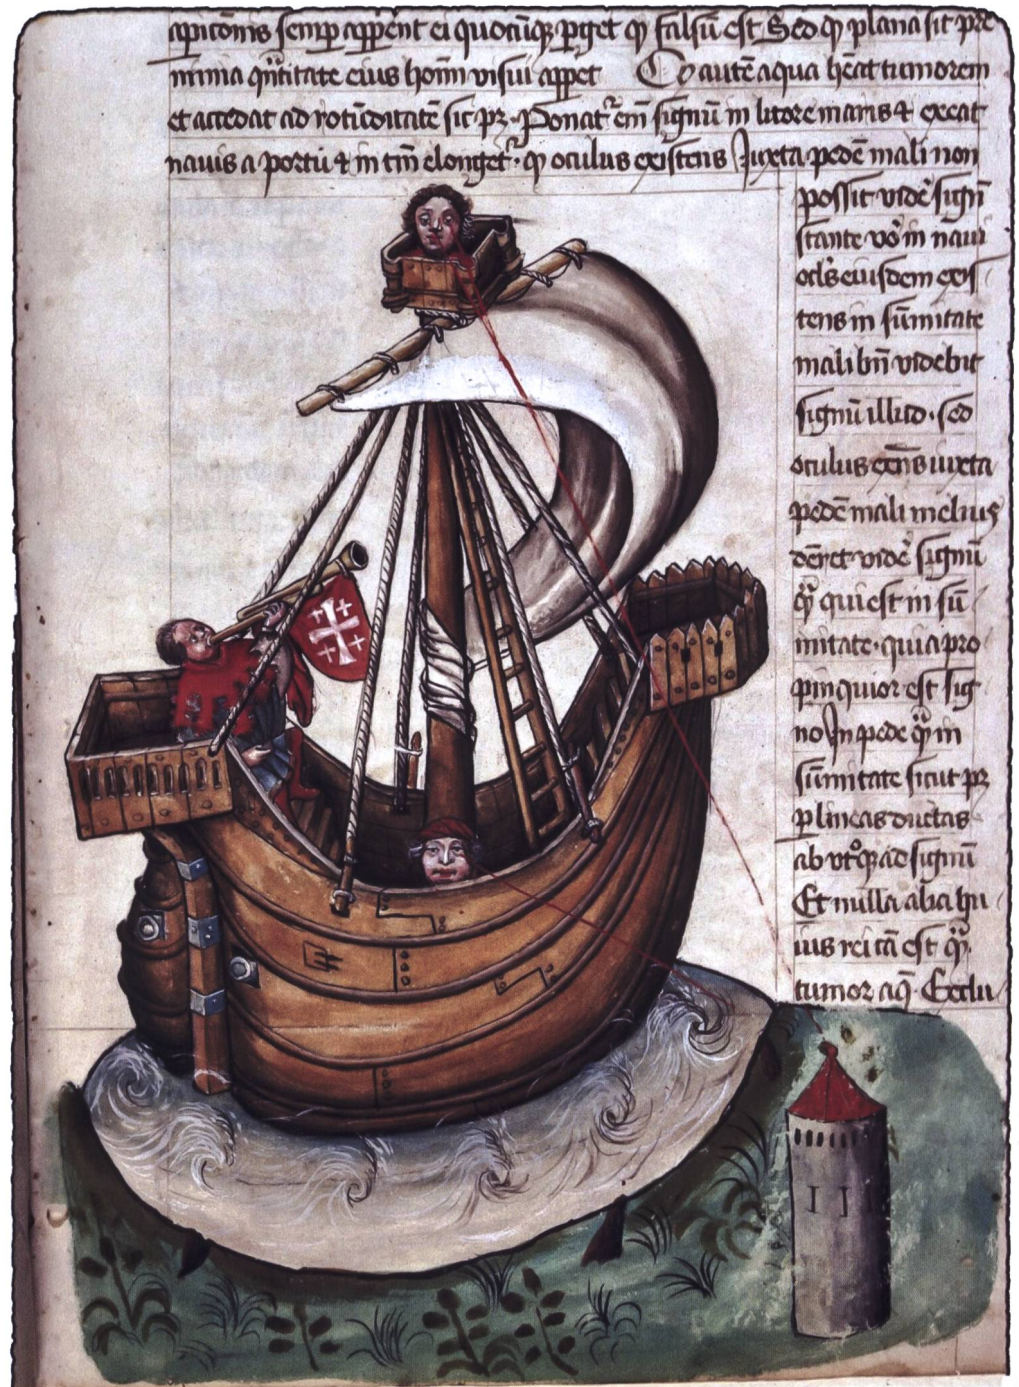 apicōīus semꝑ apꝑent ei quocūqꝫ ꝑget qꝫ falsū est Sed qꝫ plana sit pre
nimia qn̄titate eius hoīm visui apꝑet Qꝫ autē aqua hēat tumorem
et accedat ad rotūditatē sic pꝫ · Ponat᷑ em̄ signū in litore maris & exeat
nauis a portu & in tm̄ elonget᷑ · qꝫ oculus existens Juxta pedē mali non
possit vidē signū
stante vo in naui
ocls eiusdem exis
tens in sūmitate
mali bn̄ videbit
signū illud · sed
oculus exn̄s iuxta
pedē mali melius
dēret vidē signū
qͣ qui est in sū
mitate · quia pro
pinquior est sig
no In pede qͣ in
sūmitate sicut pꝫ
ꝑ lineas ductas
ab vtoqꝫ ad signū
Et nulla alia hu
ius rei cā est qͣ
tumor aq̄ · Exclu